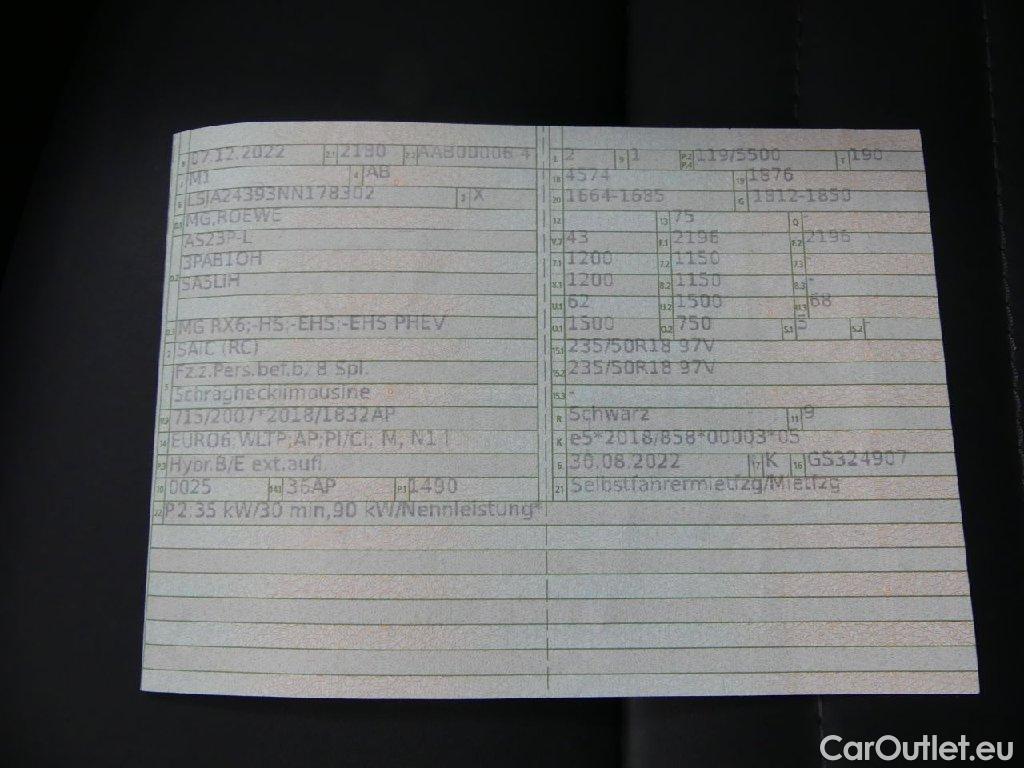 B 07.12.2022 2.1 2190 2.2 AAB00006 4
J M1 4 AB
E LSJA24393NN178302 3 X
D.1 MG,ROEWE
D.2 AS23P-L
3PAB1OH
SA5LIH
D.3 MG RX6;-HS;-EHS;-EHS PHEV
2 SAIC (RC)
5 Fz.z.Pers.bef.b. 8 Spl.
Schrägheck­limousine
V.9 715/2007*2018/1832AP
14 EURO6;WLTP;AP;PI/CI; M, N1 I
P.3 Hybr.B/E ext.aufl
10 0025 14.1 36AP P.1 1490
22 P.2:35 kW/30 min,90 kW/Nennleistung*
L 2 9 1 P.2 P.4 119/5500 T 190
18 4574 19 1876
20 1664-1685 G 1812-1850
12 - 13 75 Q -
V.7 43 F.1 2196 F.2 2196
7.1 1200 7.2 1150 7.3 -
8.1 1200 8.2 1150 8.3 -
U.1 62 U.2 1500 U.3 68
O.1 1500 O.2 750 S.1 5 S.2 -
15.1 235/50R18 97V
15.2 235/50R18 97V
15.3 -
R Schwarz 11 9
K e5*2018/858*00003*05
6 30.08.2022 17 K 16 GS324907
21 Selbstfahrermietfzg/Mietfzg
CarOutlet.eu